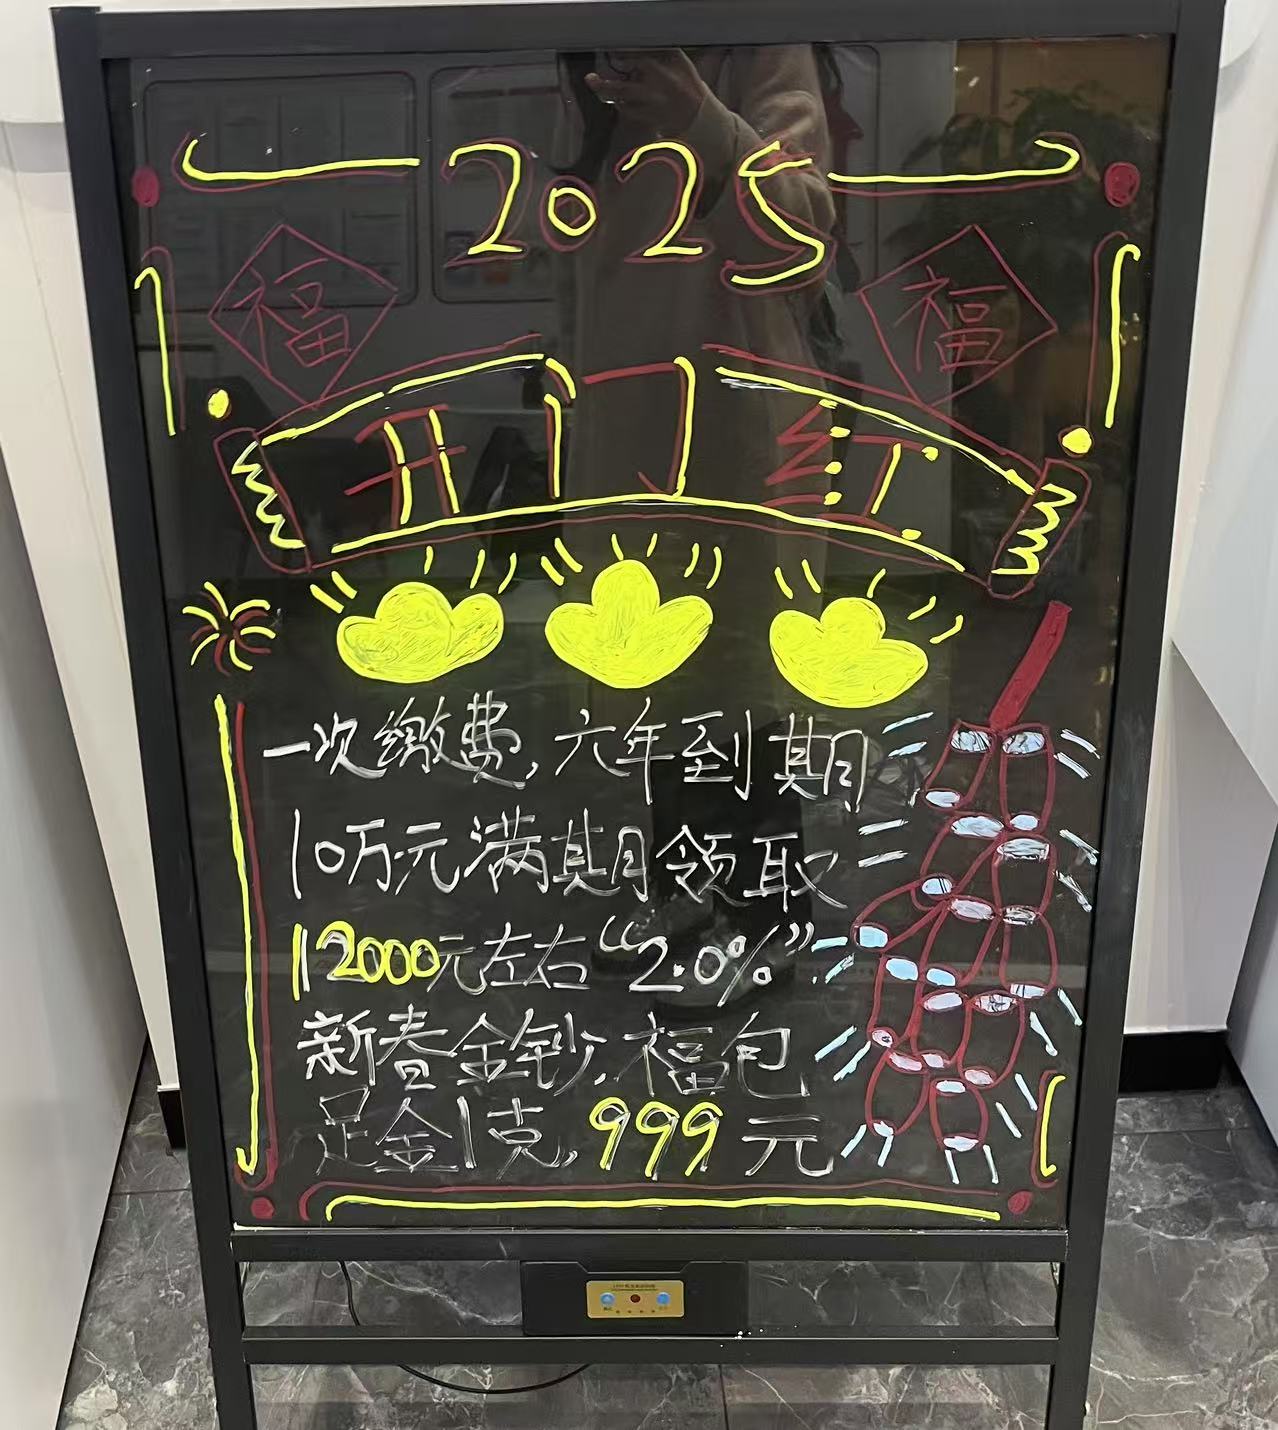 2025
福
福
开门红
一次缴费,六年到期
10万元满期领取
12000元左右“2.0%”
新春金钞.福包
足金1克,999元